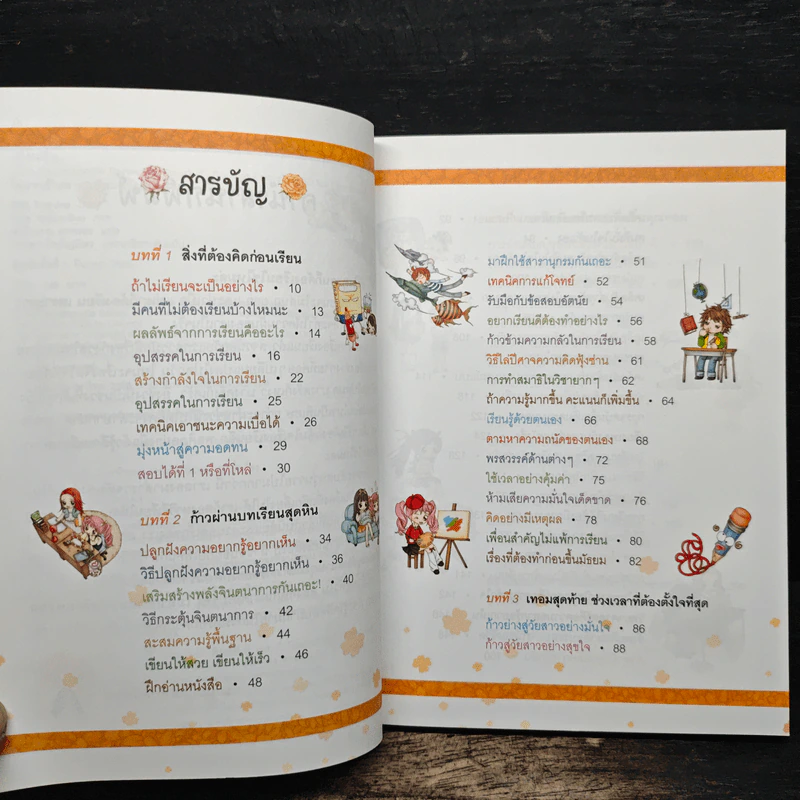 สารบัญ
บทที่ 1 สิ่งที่ต้องคิดก่อนเรียน
ถ้าไม่เรียนจะเป็นอย่างไร • 10
มีคนที่ไม่ต้องเรียนบ้างไหมนะ • 13
ผลลัพธ์จากการเรียนคืออะไร • 14
อุปสรรคในการเรียน • 16
สร้างกำลังใจในการเรียน • 22
อุปสรรคในการเรียน • 25
เทคนิคเอาชนะความเบื่อได้ • 26
มุ่งหน้าสู่ความอดทน • 29
สอบได้ที่ 1 หรือที่โหล่ • 30
บทที่ 2 ก้าวผ่านบทเรียนสุดหิน
ปลูกฝังความอยากรู้อยากเห็น • 34
วิธีปลูกฝังความอยากรู้อยากเห็น • 36
เสริมสร้างพลังจินตนาการกันเถอะ! • 40
วิธีกระตุ้นจินตนาการ • 42
สะสมความรู้พื้นฐาน • 44
เขียนให้สวย เขียนให้เร็ว • 46
ฝึกอ่านหนังสือ • 48
มาฝึกใช้สารานุกรมกันเถอะ • 51
เทคนิคการแก้โจทย์ • 52
รับมือกับข้อสอบอัตนัย • 54
อยากเรียนดีต้องทำอย่างไร • 56
ก้าวข้ามความกลัวในการเรียน • 58
วิธีไล่ปีศาจความคิดฟุ้งซ่าน • 61
การทำสมาธิในวิชายากๆ • 62
ถ้าความรู้มากขึ้น คะแนนก็เพิ่มขึ้น • 64
เรียนรู้ด้วยตนเอง • 66
ตามหาความถนัดของตนเอง • 68
พรสวรรค์ด้านต่างๆ • 72
ใช้เวลาอย่างคุ้มค่า • 75
ห้ามเสียความมั่นใจเด็ดขาด • 76
คิดอย่างมีเหตุผล • 78
เพื่อนสำคัญไม่แพ้การเรียน • 80
เรื่องที่ต้องทำก่อนขึ้นมัธยม • 82
บทที่ 3 เทอมสุดท้าย ช่วงเวลาที่ต้องตั้งใจที่สุด
ก้าวย่างสู่วัยสาวอย่างมั่นใจ • 86
ก้าวสู่วัยสาวอย่างสุขใจ • 88